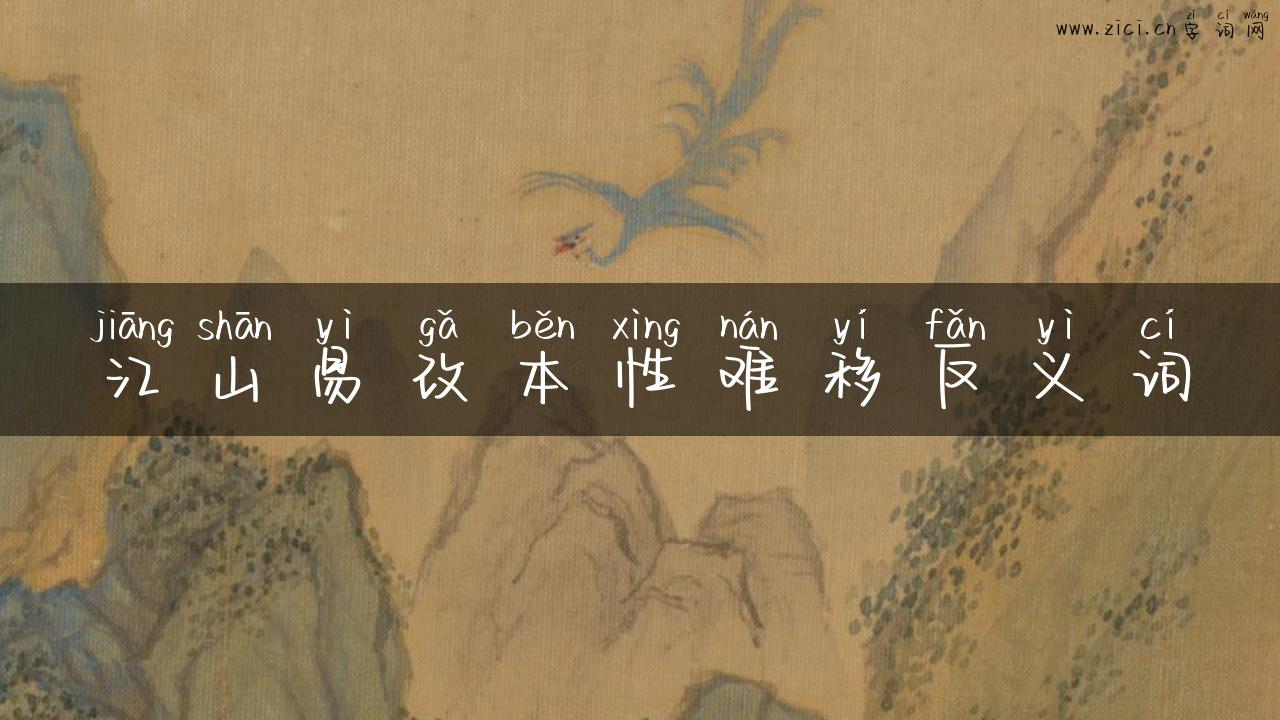 zì cí wǎng
www.zici.cn字词网
jiāng shān yì gǎ běn xìng nán yí fǎn yì cí
江山易改本性难移反义词